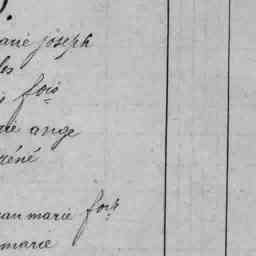 arie joseph
les
fois
rie ange
réné
ean marie fois
marie